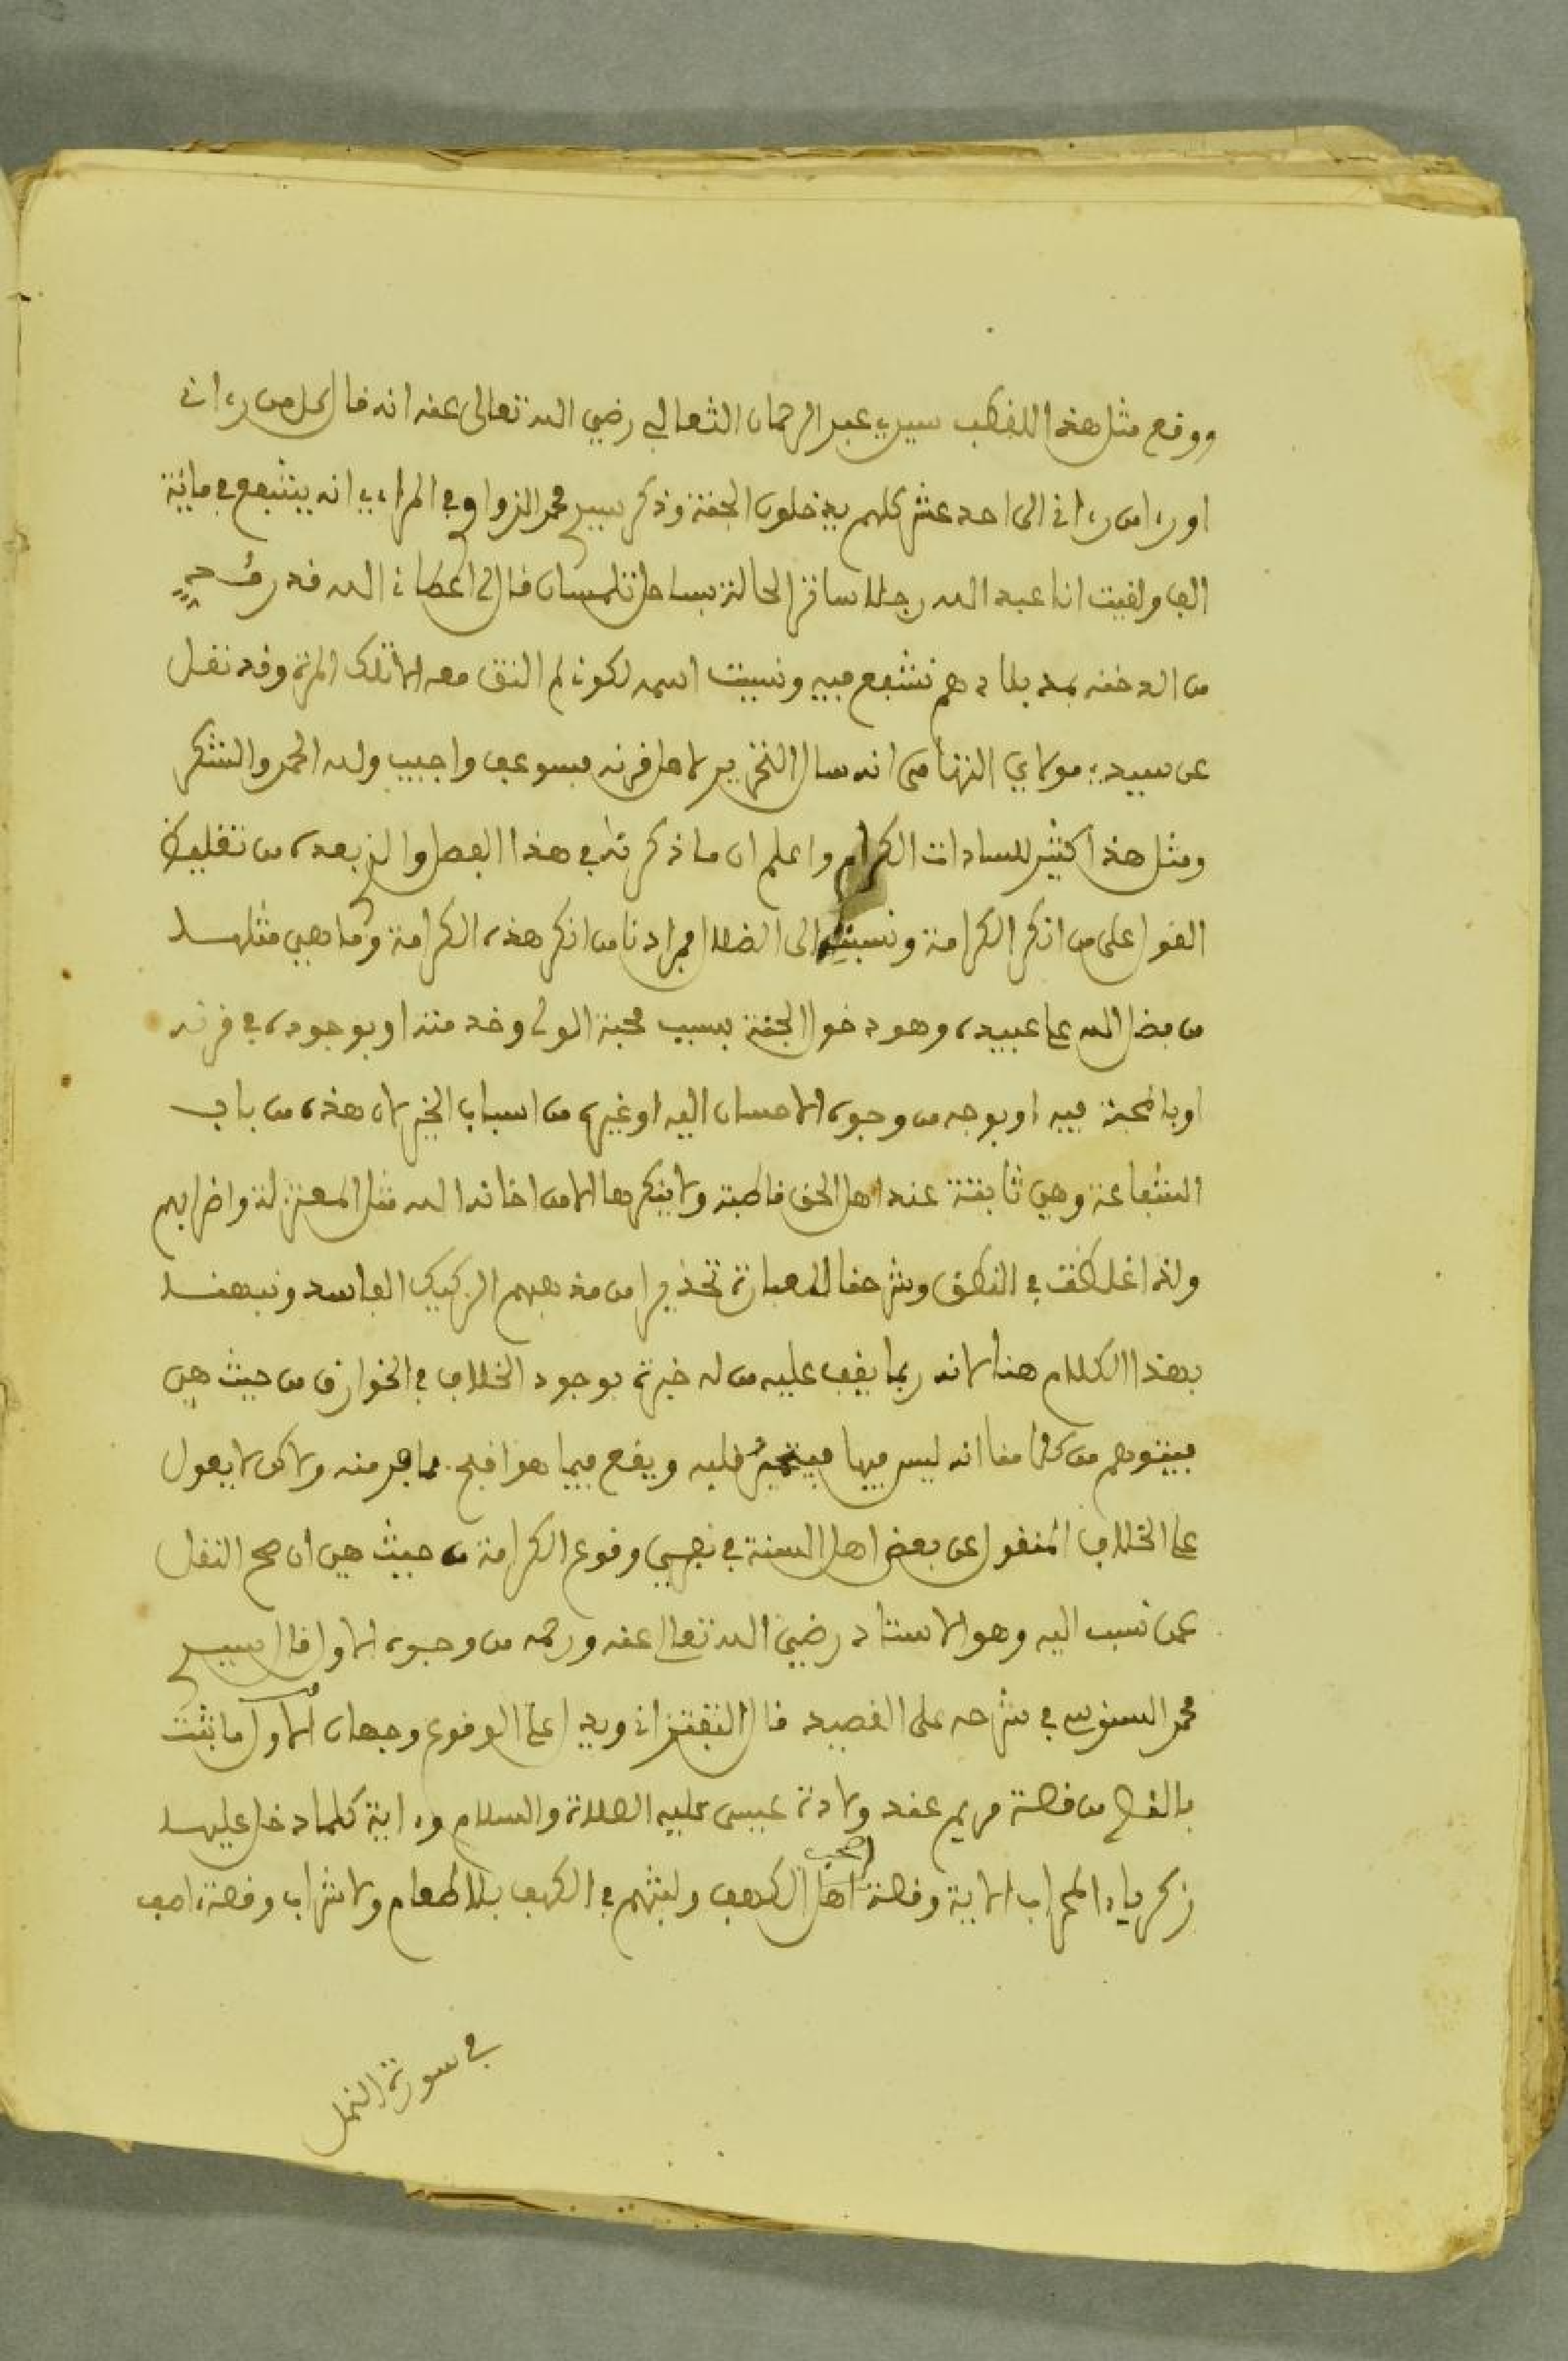 ووقع مثل هذا للقطب سيدي عبد الرحمان الثعالبي رضي الله تعالى عنه انه قال كل من رءاني
او رءا من رءاني الى احد عشر كلهم يدخلون الجنة وذكر سيدي محمد الزواوي في المراءي انه يشفع في ماية
الف ولقيت انا عبد الله رجلا سافر الحالة بساحل تلمسان قال لي اعطاني الله قدر
من الدخنه بلادهم نشفع فيه ونسيت اسمه لكوني لم التق معه الا تلك المرة وقد نقل
عن سيدي مولاي التهامي انه سال التحرير لاهل قرنه فسوعف واجيب ولله الحمد والشكر
ومثل هذا كثير للسادات الكرام واعلم ان ما ذكرته في هذا الفصل والذي بعده من تغليظ
القول على من انكر الكرامة ونسبته الى الضلال فمرادنا من انكر هذه الكرامة وما هي مثلها
من فضل الله على عبيده وهو دخول الجنة بسبب محبة الولي وخدمته او بوجوده في قرنه
او بالمحبة فيه او بوجه من وجوه الاحسان اليه او غيرها من اسباب الخير لان هذه من باب
الشفاعة وهي ثابتة عند اهل الحق قاطبة ولا ينكرها الا من اخانه الله مثل المعتزلة واضرابهم
ولذا اغلظت في النطق وشرحنا العبارة تحذيرا من مذهبهم الركيك الفاسد ونبهنا
بهذا الكلام هنا لانه ربما يقف عليه من له خبرة بوجود الخلاف في الخوارق من حيث هي
فيتوهم من كلامنا انه ليس فيها فيتحير قلبه ويقع فيما هو اقبح مما فر منه ولاكن لا يعول
على الخلاف المنقول عن بعض اهل السنة في نفي وقوع الكرامة من حيث هي ان صح النقل
عمن نسب اليه وهو الاستاد رضي الله تعالى عنه ورحمه من وجوه الاول قال سيدي
محمد السنوسي في شرحه على القصيد قال التفتزاني ويدل على الوقوع وجهان الاول ما ثبت
بالنص من قصة مريم عند ولادة عيسى عليه الصلاة والسلام وءاية كلما دخل عليها
زكرياء المحراب الاية وقصة اهل اصحب الكهف ولبثهم في الكهف بلا طعام ولا شراب وقصة ءاصف
في سورة النمل